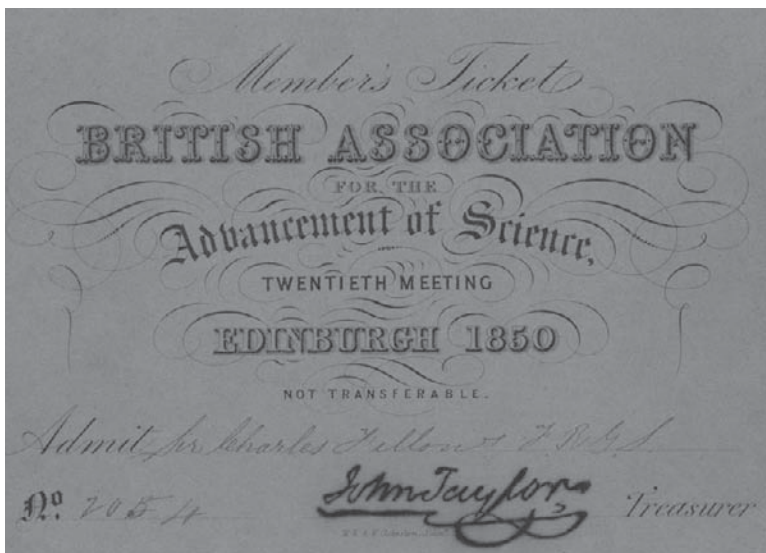 Member's Ticket
BRITISH ASSOCIATION
FOR THE
Advancement of Science,
TWENTIETH MEETING
EDINBURGH 1850
NOT TRANSFERABLE.
Admit Sir Charles Fellows F.R.G.S.
No. 2054 John Taylor Treasurer